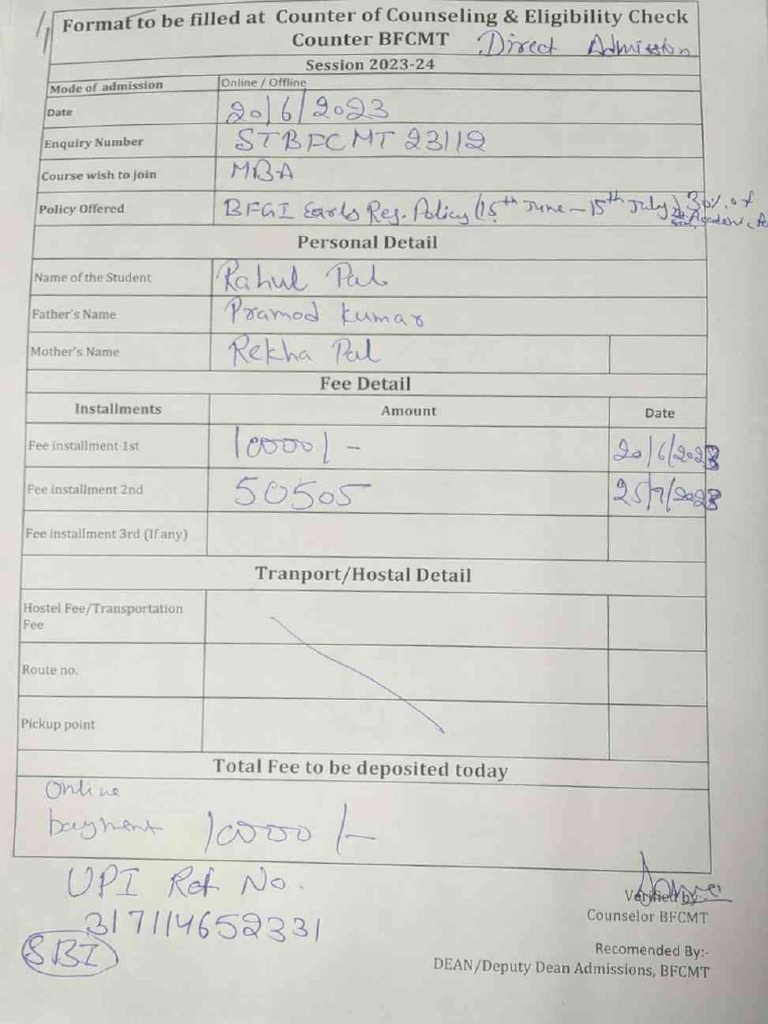 Format to be filled at Counter of Counseling & Eligibility Check
Counter BFCMT Direct Admission
Session 2023-24
Mode of admission Online / Offline
Date 20/6/2023
Enquiry Number STBFCMT 23112
Course wish to join MBA
Policy Offered BFGI Early Reg. Policy (15th June - 15th July) 30% of
Personal Detail
Name of the Student Rahul Pal
Father's Name Pramod Kumar
Mother's Name Rekha Pal
Fee Detail
Installments Amount Date
Fee installment 1st 10000/- 20/6/2023
Fee installment 2nd 50505 25/7/2023
Fee installment 3rd (If any)
Tranport/Hostal Detail
Hostel Fee/Transportation
Fee
Route no.
Pickup point
Total Fee to be deposited today
Online
payment 10000/-
UPI Ref No.
317114652331
SBI
Verified by:-
Counselor BFCMT
Recomended By:-
DEAN/Deputy Dean Admissions, BFCMT